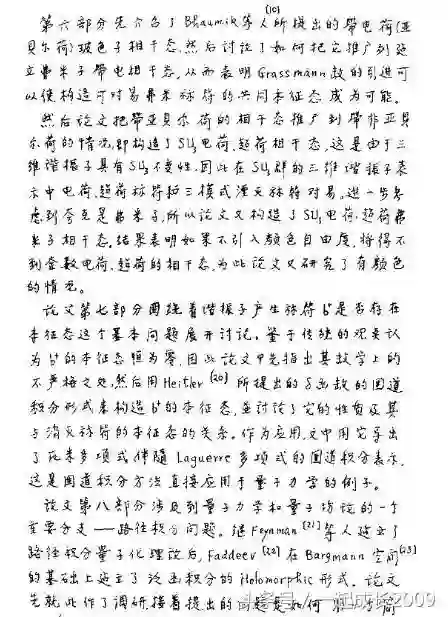 第六部分先介绍了Bhaumik等人[10]所提出的带电荷(亚
贝尔荷)玻色子相干态,然后讨论了如何把它推广到建
立费米子带电相干态,从而表明Grassmann数的引进可
以使构造可对易费米算符的共同本征态成为可能。
然后论文把带亚贝尔荷的相干态推广到带非亚贝
尔荷的情况,即构造了SU3电荷、超荷相干态,这是由于三
维谐振子具有SU3不变性,因此在SU3群的三维谐振子表
示中电荷、超荷算符和三模式湮灭算符对易。进一步考
虑到夸克是费米子,所以论文又构造了SU3电荷、超荷费
米子相干态,结果表明如果不引入颜色自由度,将得不
到整数电荷、超荷的相干态,为此论文又研究了有颜色
的情况。
论文第七部分围绕着谐振子产生算符b⁺是否存在
本征态这个基本问题展开讨论。鉴于传统的观点认
为b⁺的本征态恒为零,因此论文中先指出其数学上的
不严格之处,然后用Heitler[20]所提出的δ函数的围道
积分形式来构造b⁺的本征态,并讨论了它的性质及其
与消灭算符的本征态的关系。作为应用,文中用它导出
了厄米多项式伴随Laguerre多项式的围道积分表示,
这是围道积分方法直接应用于量子力学的例子。
论文第八部分涉及到量子力学和量子场论的一个
重要分支——路径积分问题。继Feynman[21]等人建立了
路径积分量子化理论后,Faddeev[22]在Bargmann空间[23]
的基础上建立了泛函积分的Holomorphic形式。论文
先就此作了调研,接着提出的问题是如何
头条号/一起成长2009